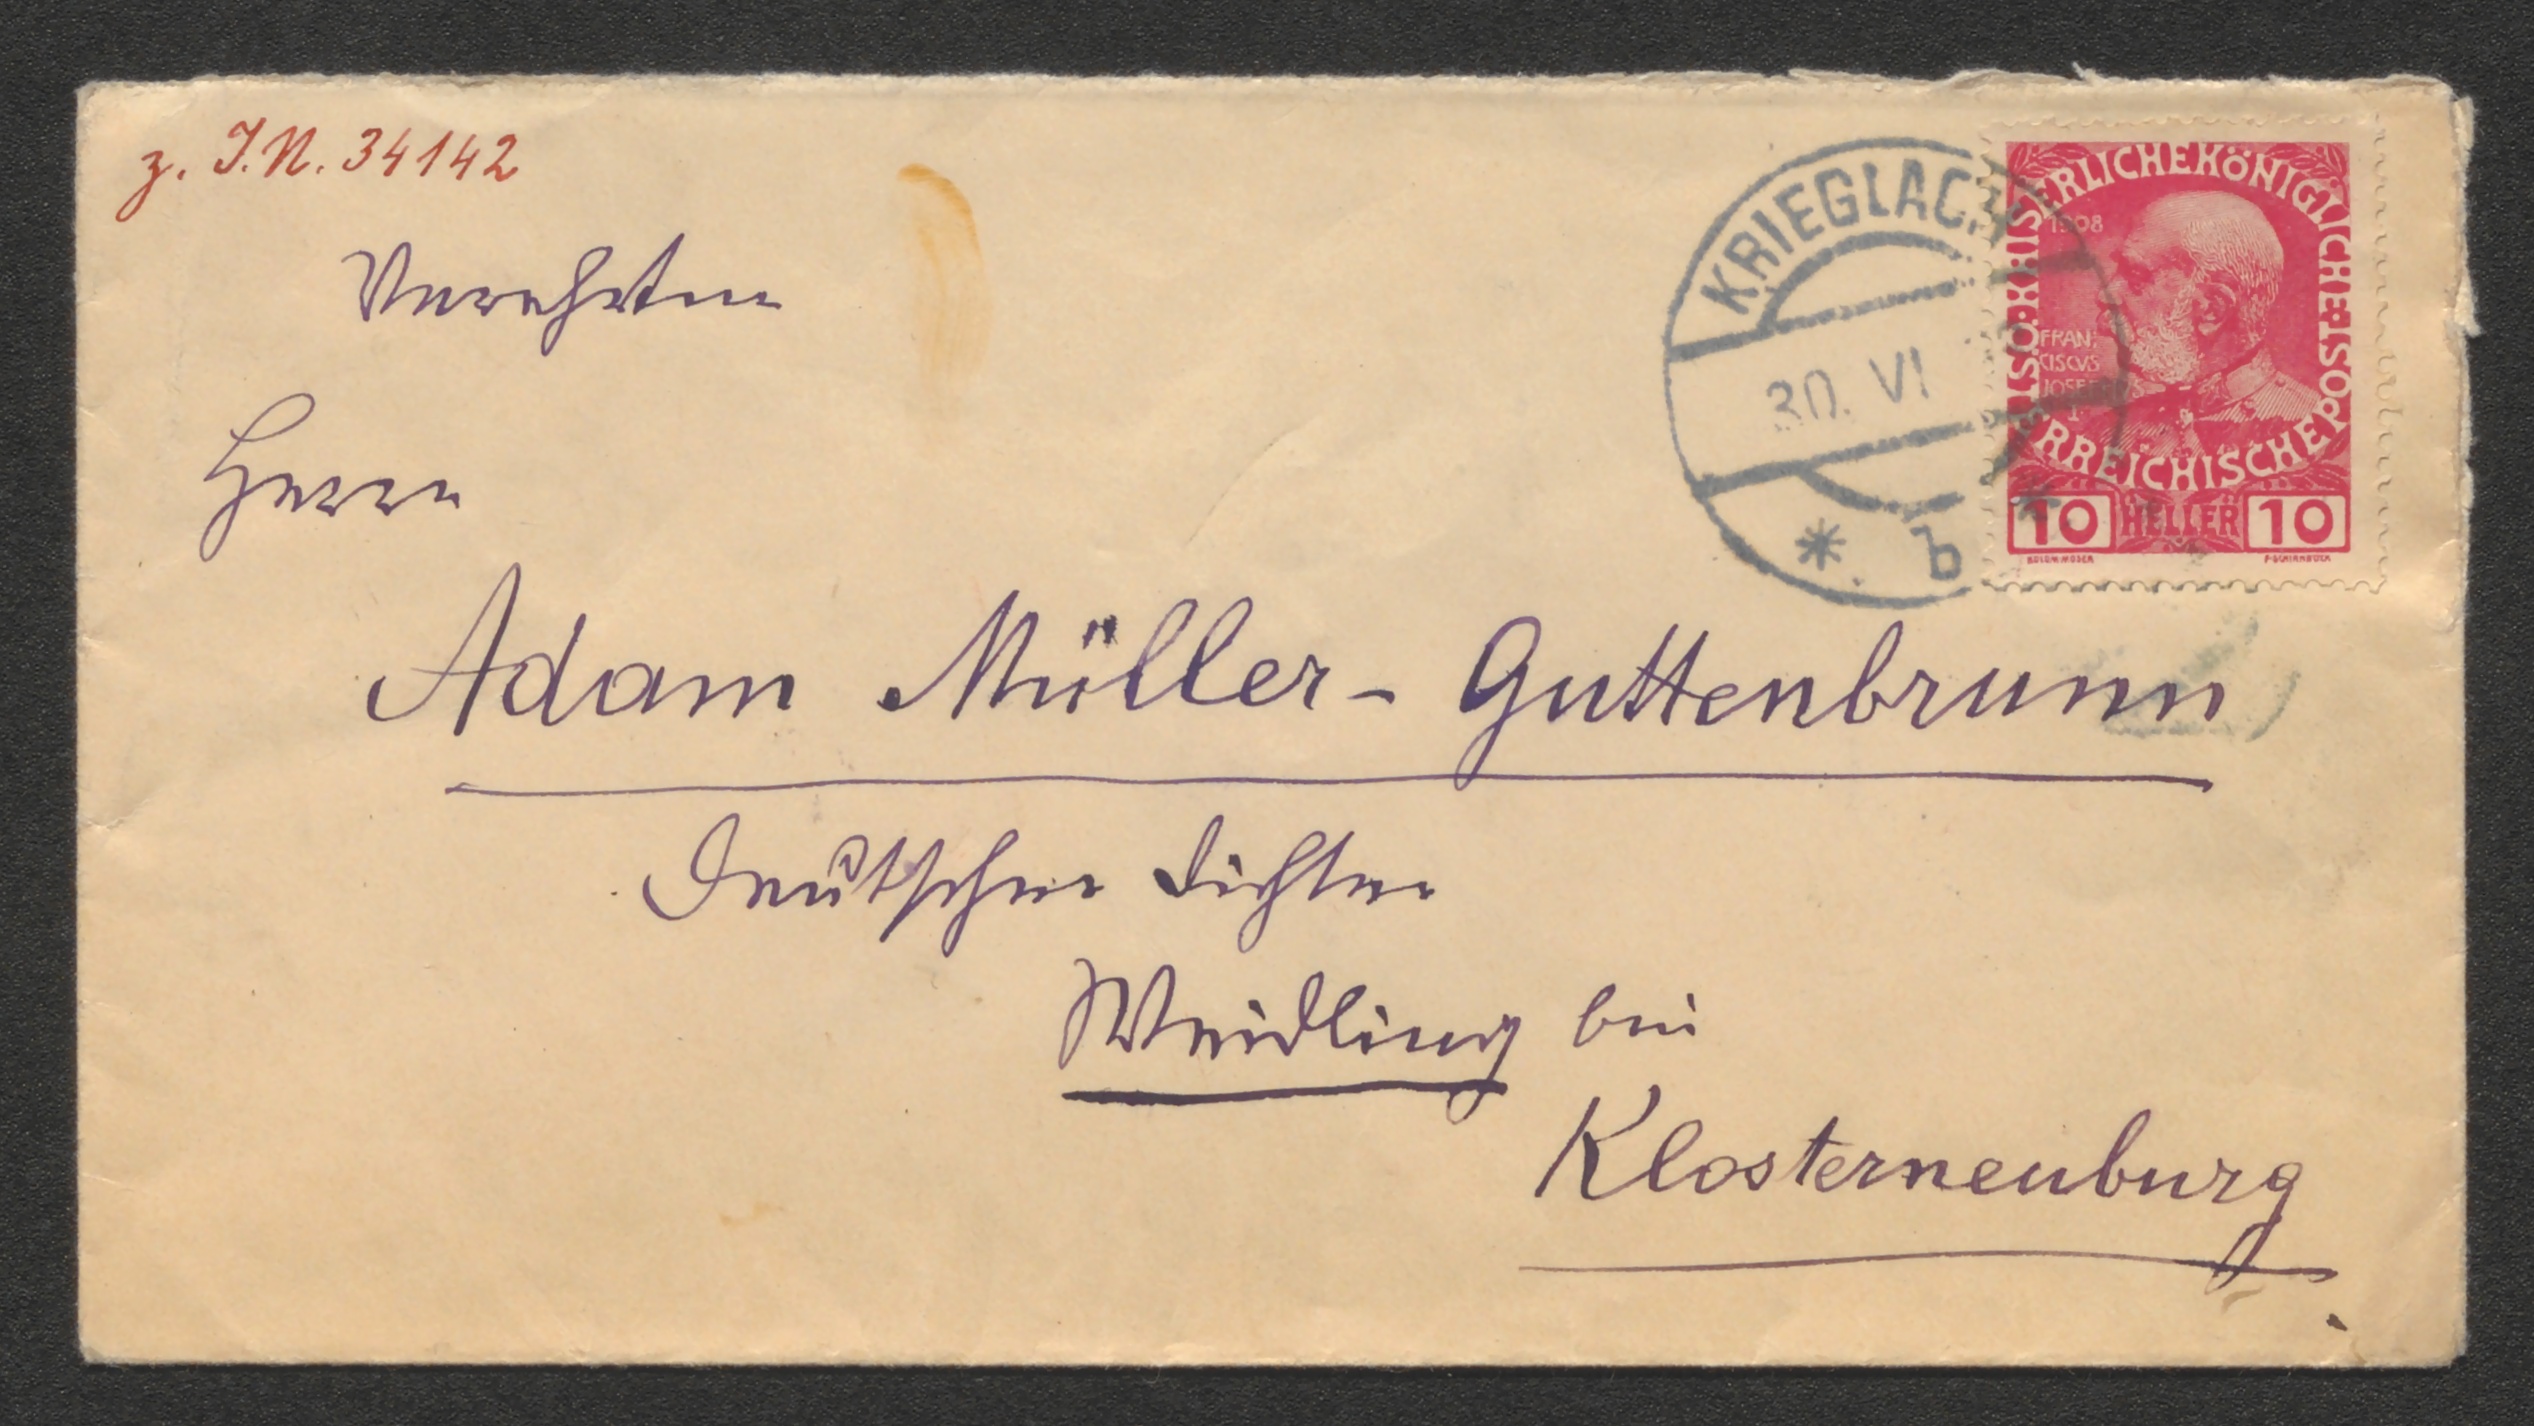 z. I.N. 34142
Verehrten
Herrn
Adam Müller-Guttenbrunn
Deutscher Dichter
Weidling bei
Klosterneuburg
KRIEGLACH
30. VI
* b *
KAISERLICHEKÖNIGLICHE ÖSTERREICHISCHE POST
1908
FRAN:
CISCVS
JOSEPHVS
I
10 HELLER 10
KOLOM.MOSER F.SCHIRNBÖCK